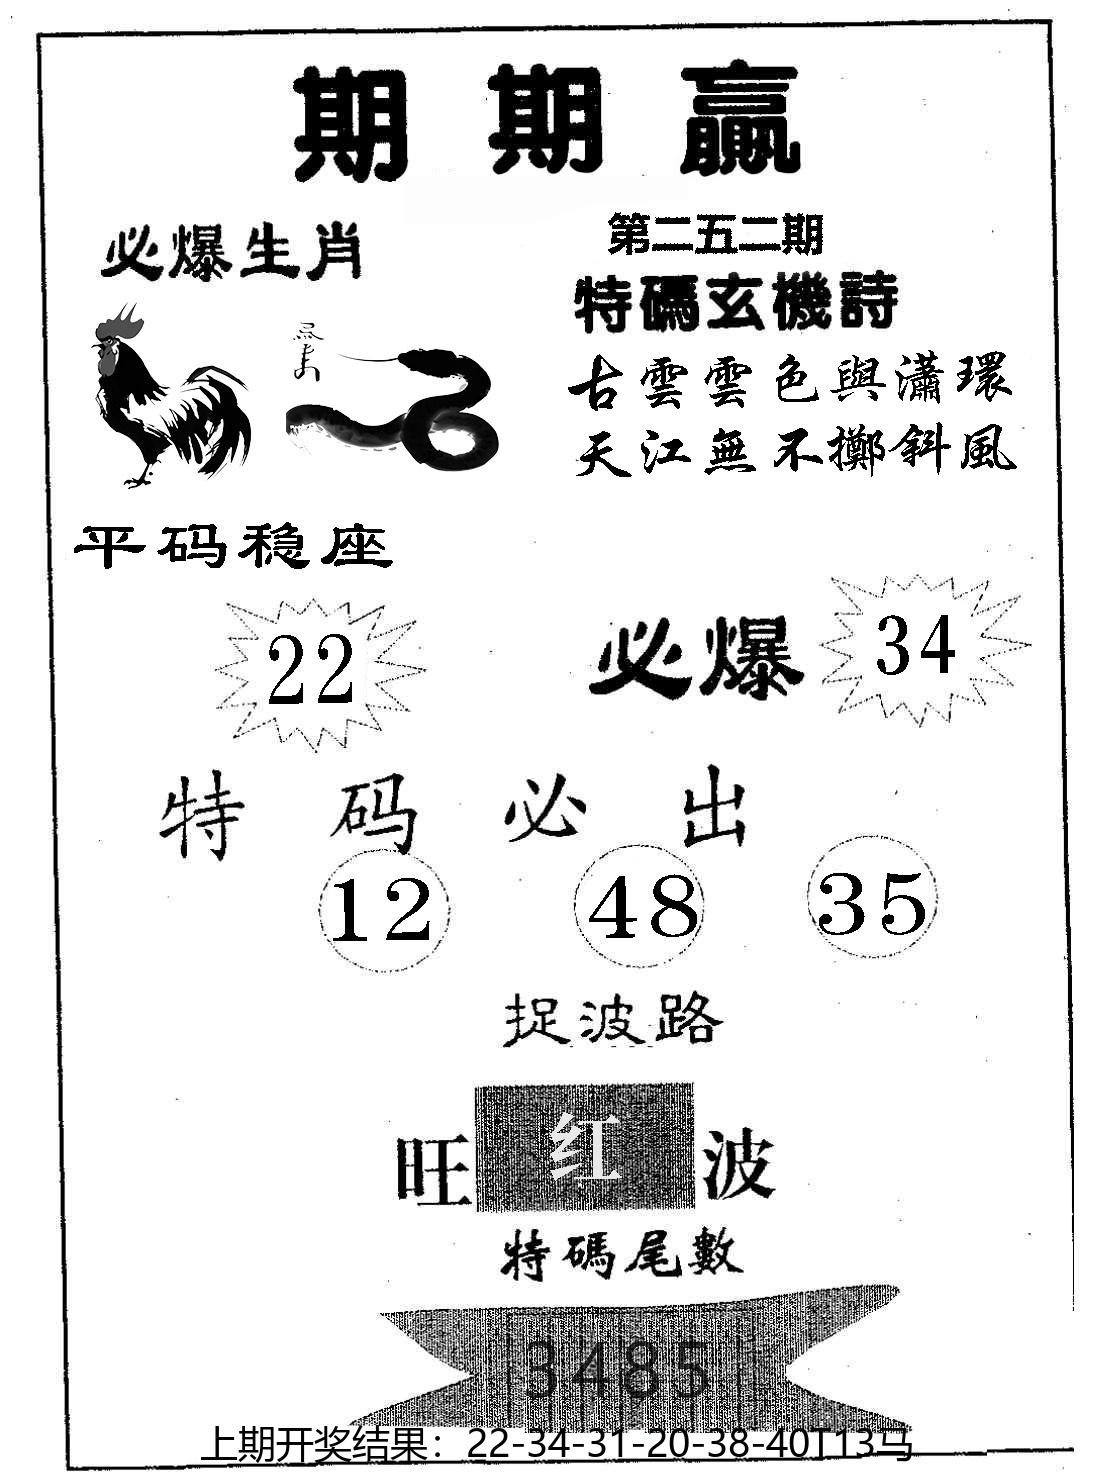 期期贏
必爆生肖
第二五二期
特碼玄機詩
古雲雲色與瀟環
天江無不擲斜風
平码稳座
22
必爆 34
特码必出
12 48 35
捉波路
旺 红 波
特碼尾數
3485
上期开奖结果：22-34-31-20-38-40T13马